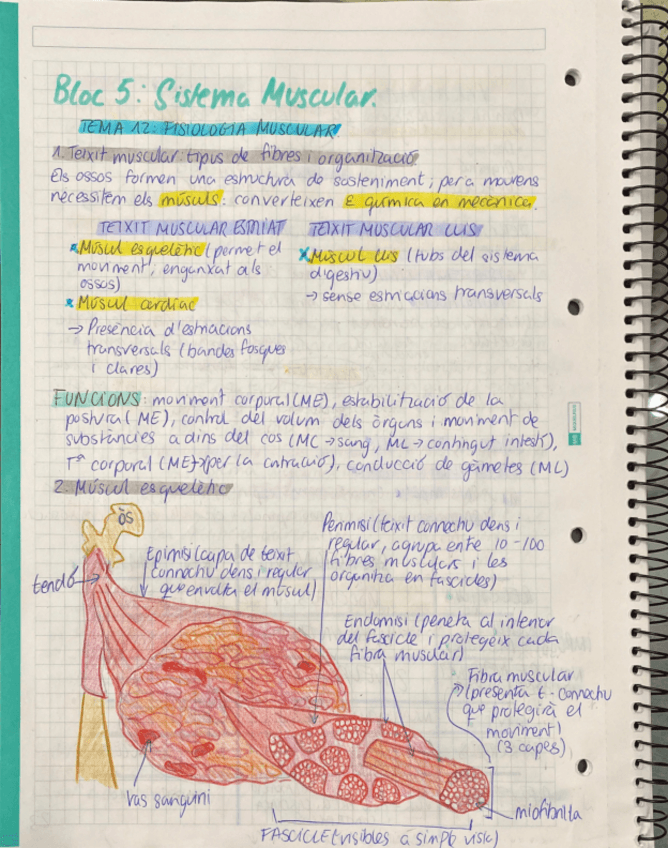 Bloc 5: Sistema Muscular.
TEMA 12: FISIOLOGIA MUSCULAR
1. Teixit muscular: tipus de fibres i organització
Els ossos formen una estructura de sosteniment; per a moure'ns
necessitem els músculs: converteixen E química en mecànica.
TEIXIT MUSCULAR ESTRIAT
* Múscul esquelètic (permet el
moviment, enganxat als
ossos)
* Múscul cardíac
→ Presència d'estriacions
transversals (bandes fosques
i clares)
TEIXIT MUSCULAR LLIS
* Múscul llis (tubs del sistema
digestiu)
→ sense estriacions transversals
FUNCIONS: moviment corporal (ME), estabilització de la
postura (ME), control del volum dels òrgans i moviment de
substàncies a dins del cos (MC → sang, ML → contingut intestí),
Tª corporal (ME → per la contracció), conducció de gàmetes (ML)
2. Múscul esquelètic
òs
tendó
Epimisi (capa de teixit
connectiu dens i regular
que envolta el múscul)
Perimisi (teixit connectiu dens i
regular, agrupa entre 10-100
fibres musculars i les
organitza en fascicles)
Endomisi (penetra al interior
del fascicle i protegeix cada
fibra muscular)
Fibra muscular
(presenta t. connectiu
que protegirà el
moviment)
(3 capes)
vas sanguini
miofibril·la
FASCICLE (visibles a simple vista)